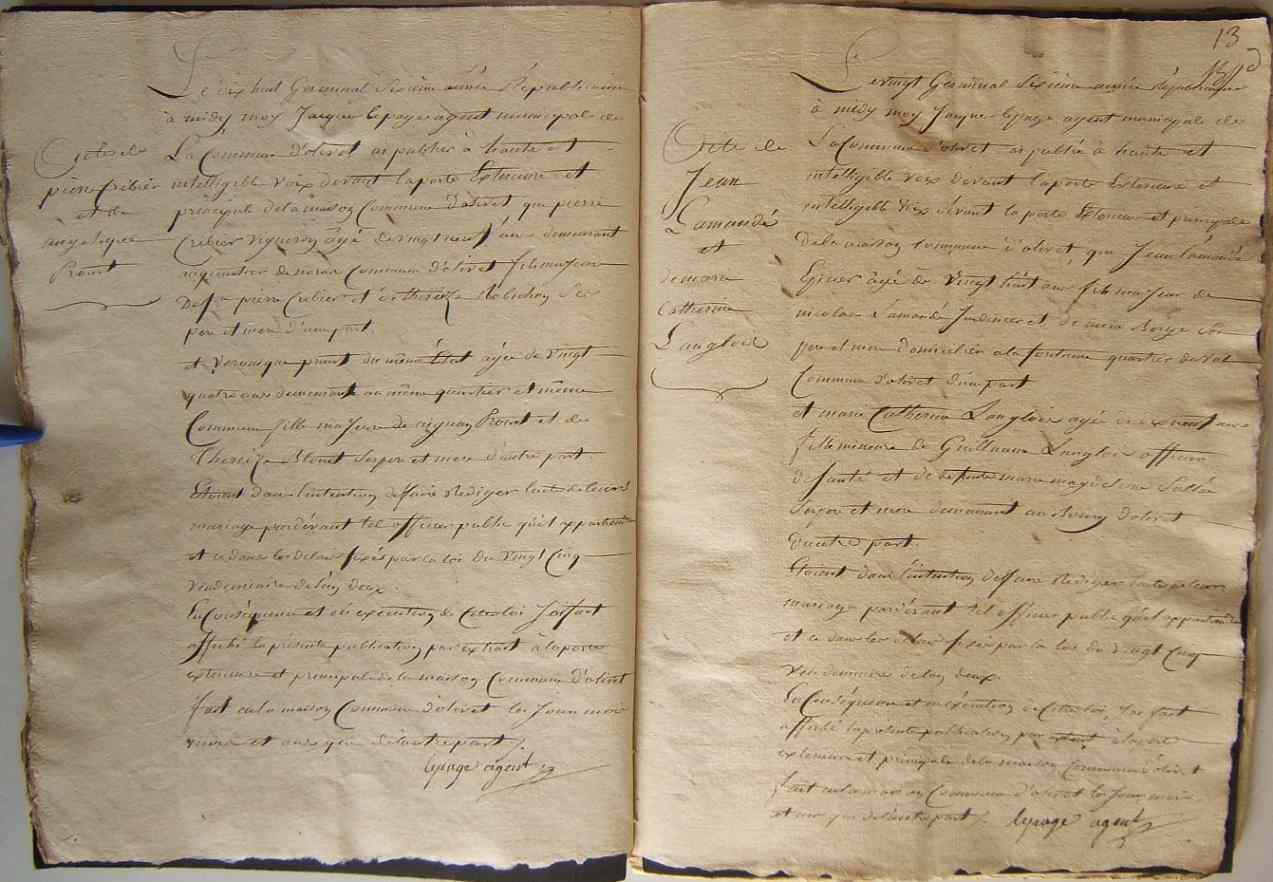 Le dix huit Germinal Sixieme année Républicaine
à midy moy Jacque lepage agent municipal de
La Commune d'olivet ai publier à haute et
intelligible voix devant la porte Exterieure et
principale de la maison Commune d'olivet, que pierre
Cribier vigneron âgé de vingt neuf ans demeurant
au quartier de Commune d'olivet fils majeur
De pierre Cribier et de therese Robichon Ses
pere et mere d'une part.
et veronique prout du même Etat agée de vingt
quatre ans demeurant au même quartier et même
Commune fille majeure de aignan Prout et de
Thereize Blouet Ses pere et mere d'autre part.
Etoient dans l'intention de faire Rediger l'acte de leurs
mariage pardevant tel officier public qu'il appartiendra
et ce dans les delais fixés par la loi du vingt Cinq
vendemiaire de l'an deux.
En Conséquence et en exécution de Cette loi J'ai fait
affiché la présente publication par extrait à la porte
exterieure et principale de la maison Commune d'olivet
fait en la maison Commune d'olivet les Jour mois
et an que de l'autre part /.
lepage agent
Acte de
pierre Cribier
et de
angelique
Prout
13
Le vingt Germinal Sixieme année Républicaine
à midy moy Jacque lepage agent municipal de
La Commune d'olivet ai publié à haute et
intelligible voix devant la porte Exterieure et
intelligible voix devant la porte Exterieure et principale
De la maison Commune d'olivet, que Jean lamandé
Epicier âgé de vingt huit ans fils majeur de
nicolas Lamandé Jardinier et de Ses
pere et mere domiciliés a la fontaine quartier du val
Commune d'olivet d'une part
et marie Catherine Langlois agée de dix neuf ans
fille mineure de Guillaume Langlois officier
de Santé et de defunte marie magdeleine Sallée
Ses pere et mere demeurant au Bourg d'olivet
D'autre part.
Etoient dans l'intention de faire Rediger l'acte de leur
mariage pardevant tel officier public qu'il appartiendra
et ce dans les delais fixés par la loi du vingt Cinq
vendemiaire de l'an deux.
En Conséquence et en exécution de Cette loi, J'ai fait
affiché la présente publication par extrait à la porte
exterieure et principale de la maison Commune d'olivet
fait en la maison Commune d'olivet les Jour, mois
et an que de l'autre part /. lepage agent
Acte de
Jean
Lamandé
et
de marie
Catherine
Langlois